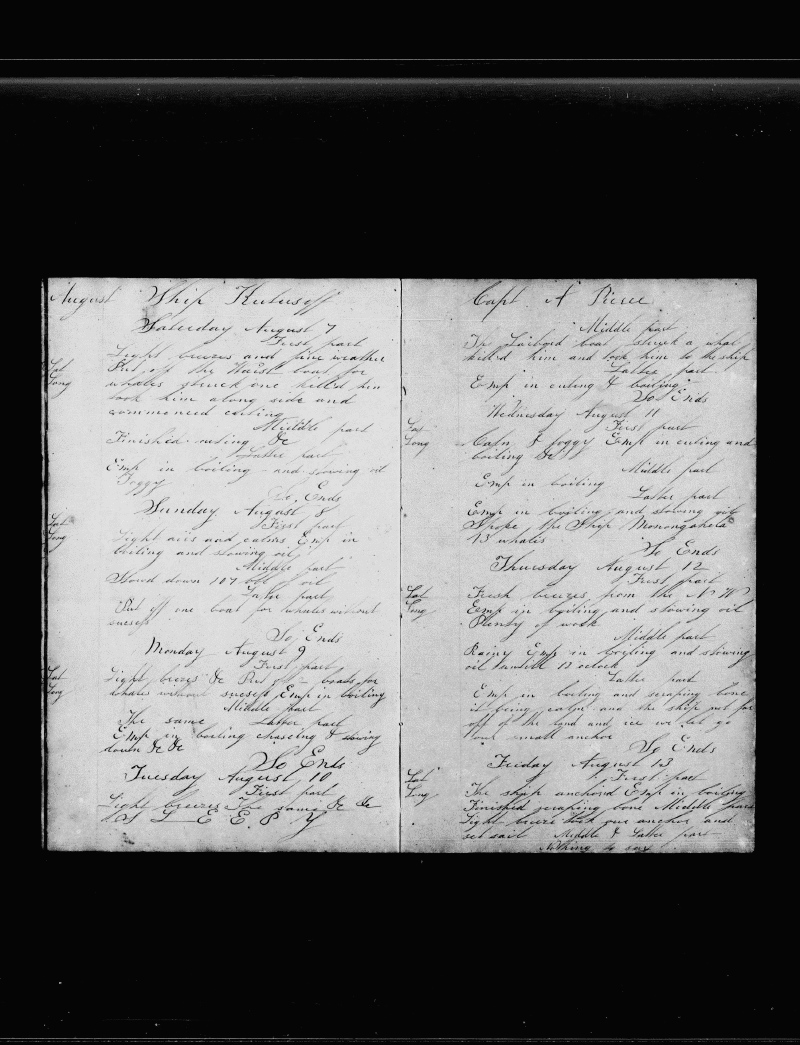 August Ship Kutusoff
Saturday August 7
First part
Light breezes and fine weather
Lat Put off the Waist boat for
Long whales struck one killed him
took him along side and
commenced cuting
Middle part
Finished cuting &c
Latter part
Emp in boiling and stowing oil
Foggy
So Ends
Sunday August 8
First part
Lat Light airs and calms Emp in
Long boiling and stowing oil
Middle part
Stowd down 107 bbl of oil
Latter part
Put off one boat for whales without
sucsess
So Ends
Monday August 9
First part
Lat Light breezes &c Put off boats for
Long whales without sucsess Emp in boiling
Middle part
The same Latter part
Emp in boiling chaseing & stowing
down &c &c
So Ends
Tuesday August 10
First part
Light breezes The same &c &c
S L E E P Y
Capt A Pierce
Middle part
The Larbord boat struck a whale
killed him and took him to the ship
Latter part
Emp in cuting & boiling
So Ends
Wednesday August 11
Lat First part
Long Calm & foggy Emp in cuting and
boiling &c
Middle part
Emp in boiling
Latter part
Emp in boiling and stowing oil
Spoke the Ship Monongahela
13 whales
So Ends
Thursday August 12
First part
Lat Fresh breezes from the N W
Long Emp in boiling and stowing oil
Plenty of work
Middle part
Rainy Emp in boiling and stowing
oil untill 12 oclock
Latter part
Emp in boiling and scraping bone
it being calm and the ship not far
off of the land and ice we let go
our small anchor
So Ends
Friday August 13
Lat First part
Long The ship anchord Emp in boiling
Finished scraping bone Middle part
Light breeze took our anchor and
set sail Middle & Latter part
Nothing to say